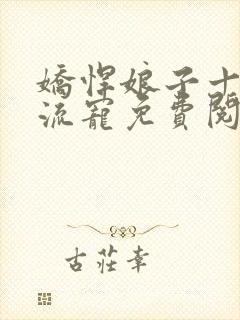 嬌悍娘子十
流寵免費閱
古莊幸